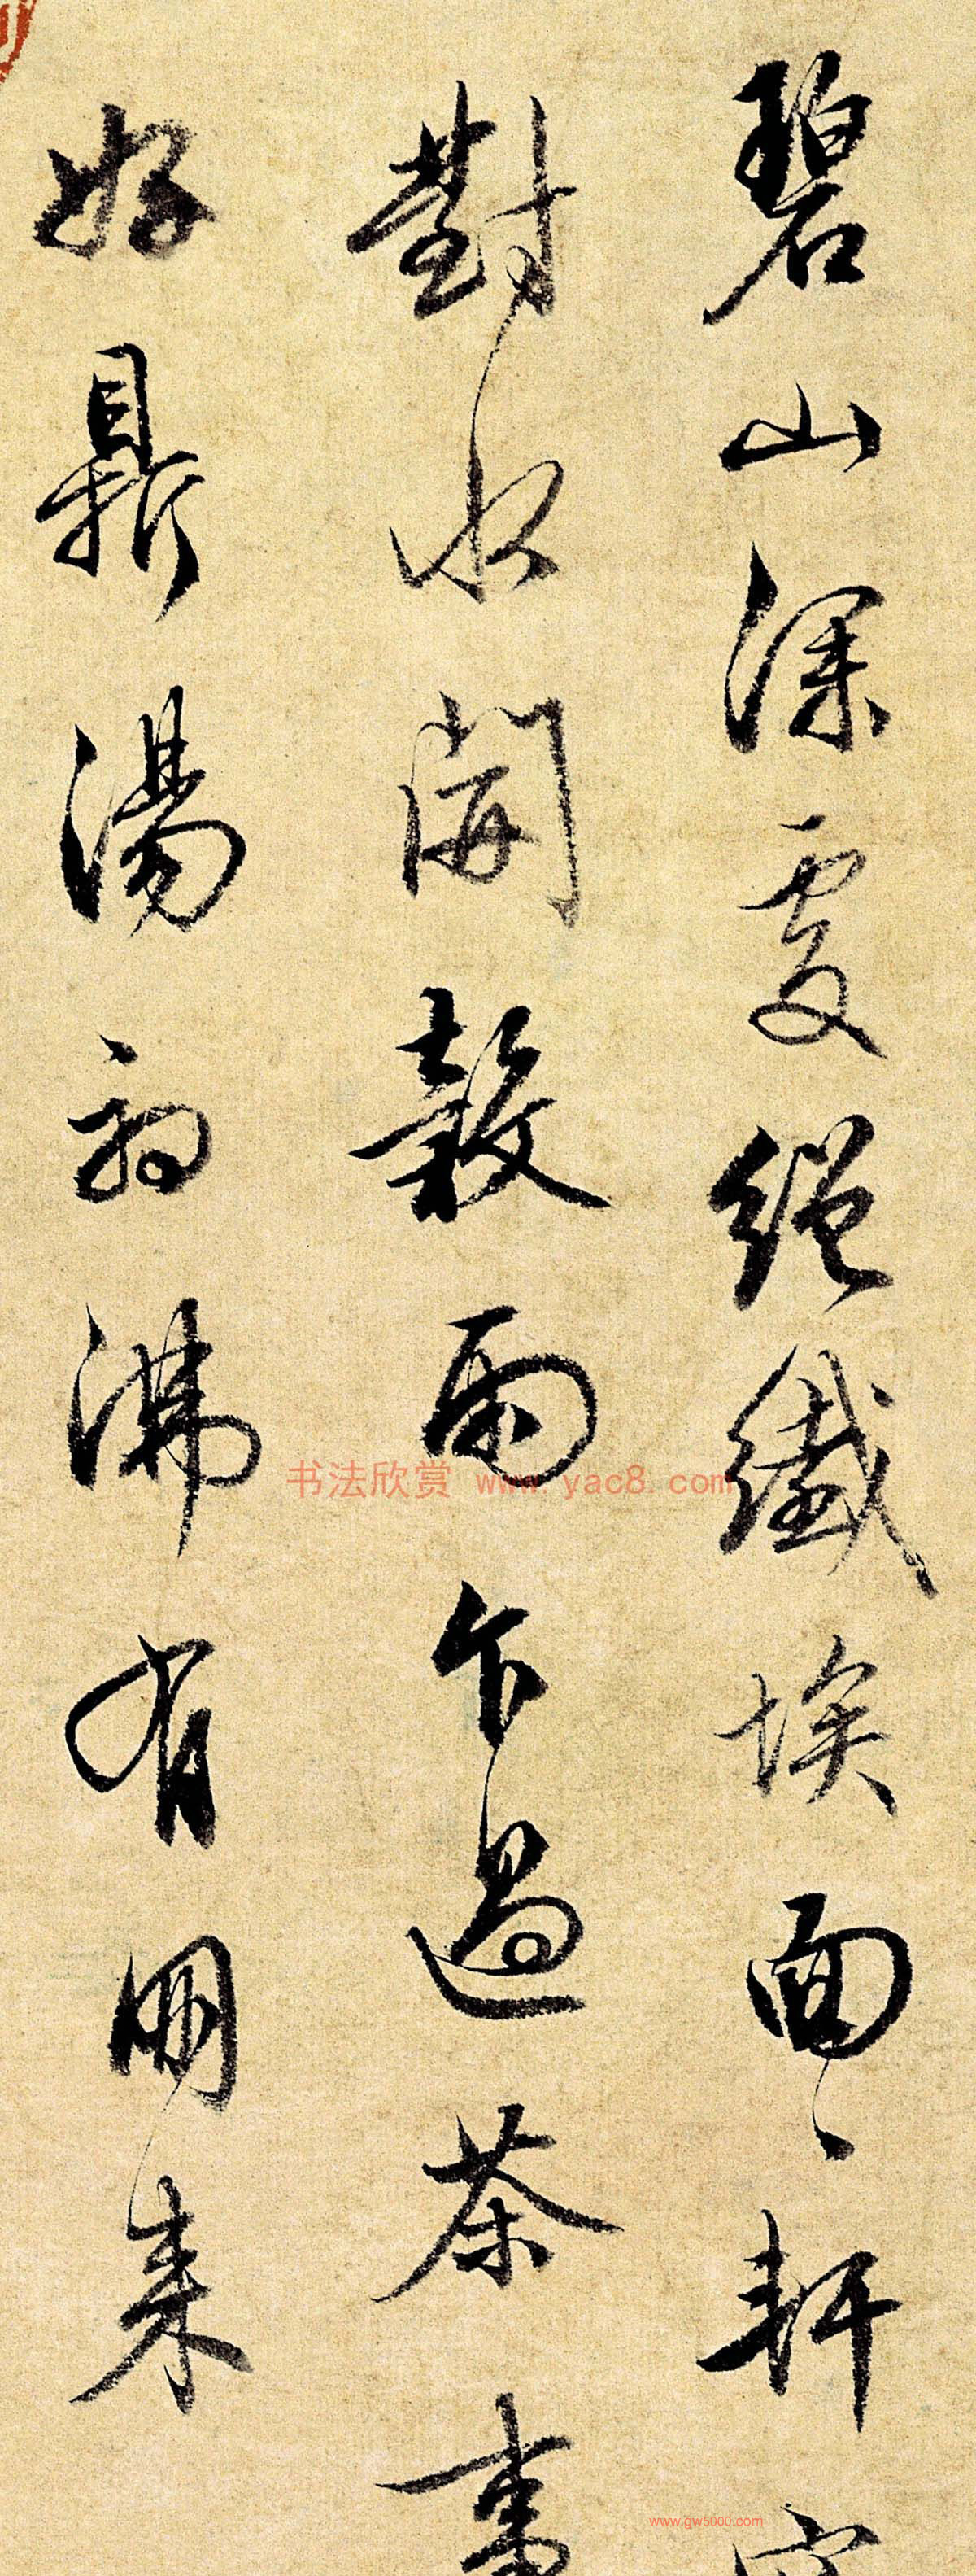 碧山深處絕纖埃面〻軒窗
對水開穀雨乍過茶事
好鼎湯初沸有朋來
书法欣赏 www.yac8.com
www.gw5000.com